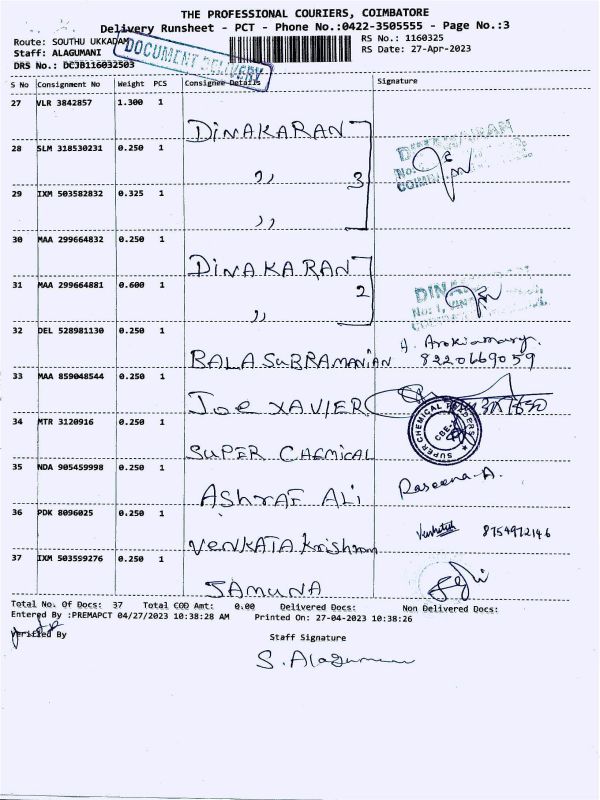 THE PROFESSIONAL COURIERS, COIMBATORE
Delivery Runsheet - PCT - Phone No.:0422-3505555 - Page No.:3
Route: SOUTHU UKKADAM
RS No.: 1160325
Staff: ALAGUMANI
RS Date: 27-Apr-2023
DOCUMENT DELIVERY
DRS No.: DC3B116032503
S No Consignment No Weight PCS Consignee Details Signature
27 VLR 3842857 1.300 1 DINAKARAN
28 SLM 318530231 0.250 1 ,, 3
29 IXM 503582832 0.325 1 ,,
30 MAA 299664832 0.250 1 DINAKARAN
31 MAA 299664881 0.600 1 ,, 2
32 DEL 528981130 0.250 1 BALASUBRAMANIAN A. Arokiamary. 8220669059
33 MAA 859048544 0.250 1 JOE XAVIER
34 MTR 3120916 0.250 1 SUPER CHEMICAL SUPER CHEMICAL TRADERS
35 NDA 905459998 0.250 1 ASHRAF ALI Raseena.A.
36 PDK 8096025 0.250 1 VENKATA Krishnan 8754972146
37 IXM 503599276 0.250 1 JAMUNA
Total No. Of Docs: 37 Total COD Amt: 0.00 Delivered Docs: Non Delivered Docs:
Entered By :PREMAPCT 04/27/2023 10:38:28 AM Printed On: 27-04-2023 10:38:26
Verified By
Staff Signature
S. Alagumani